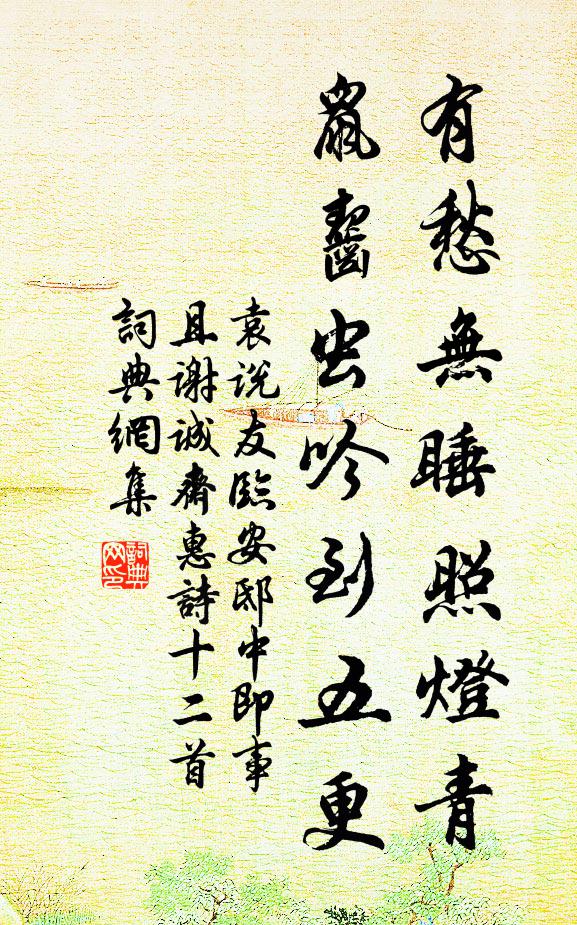 有愁無睡照燈青
鼠齧虫吟到五更
袁说友臨安邸中即事
且謝诚齋惠詩十二首
詞典網集
詞典
网印